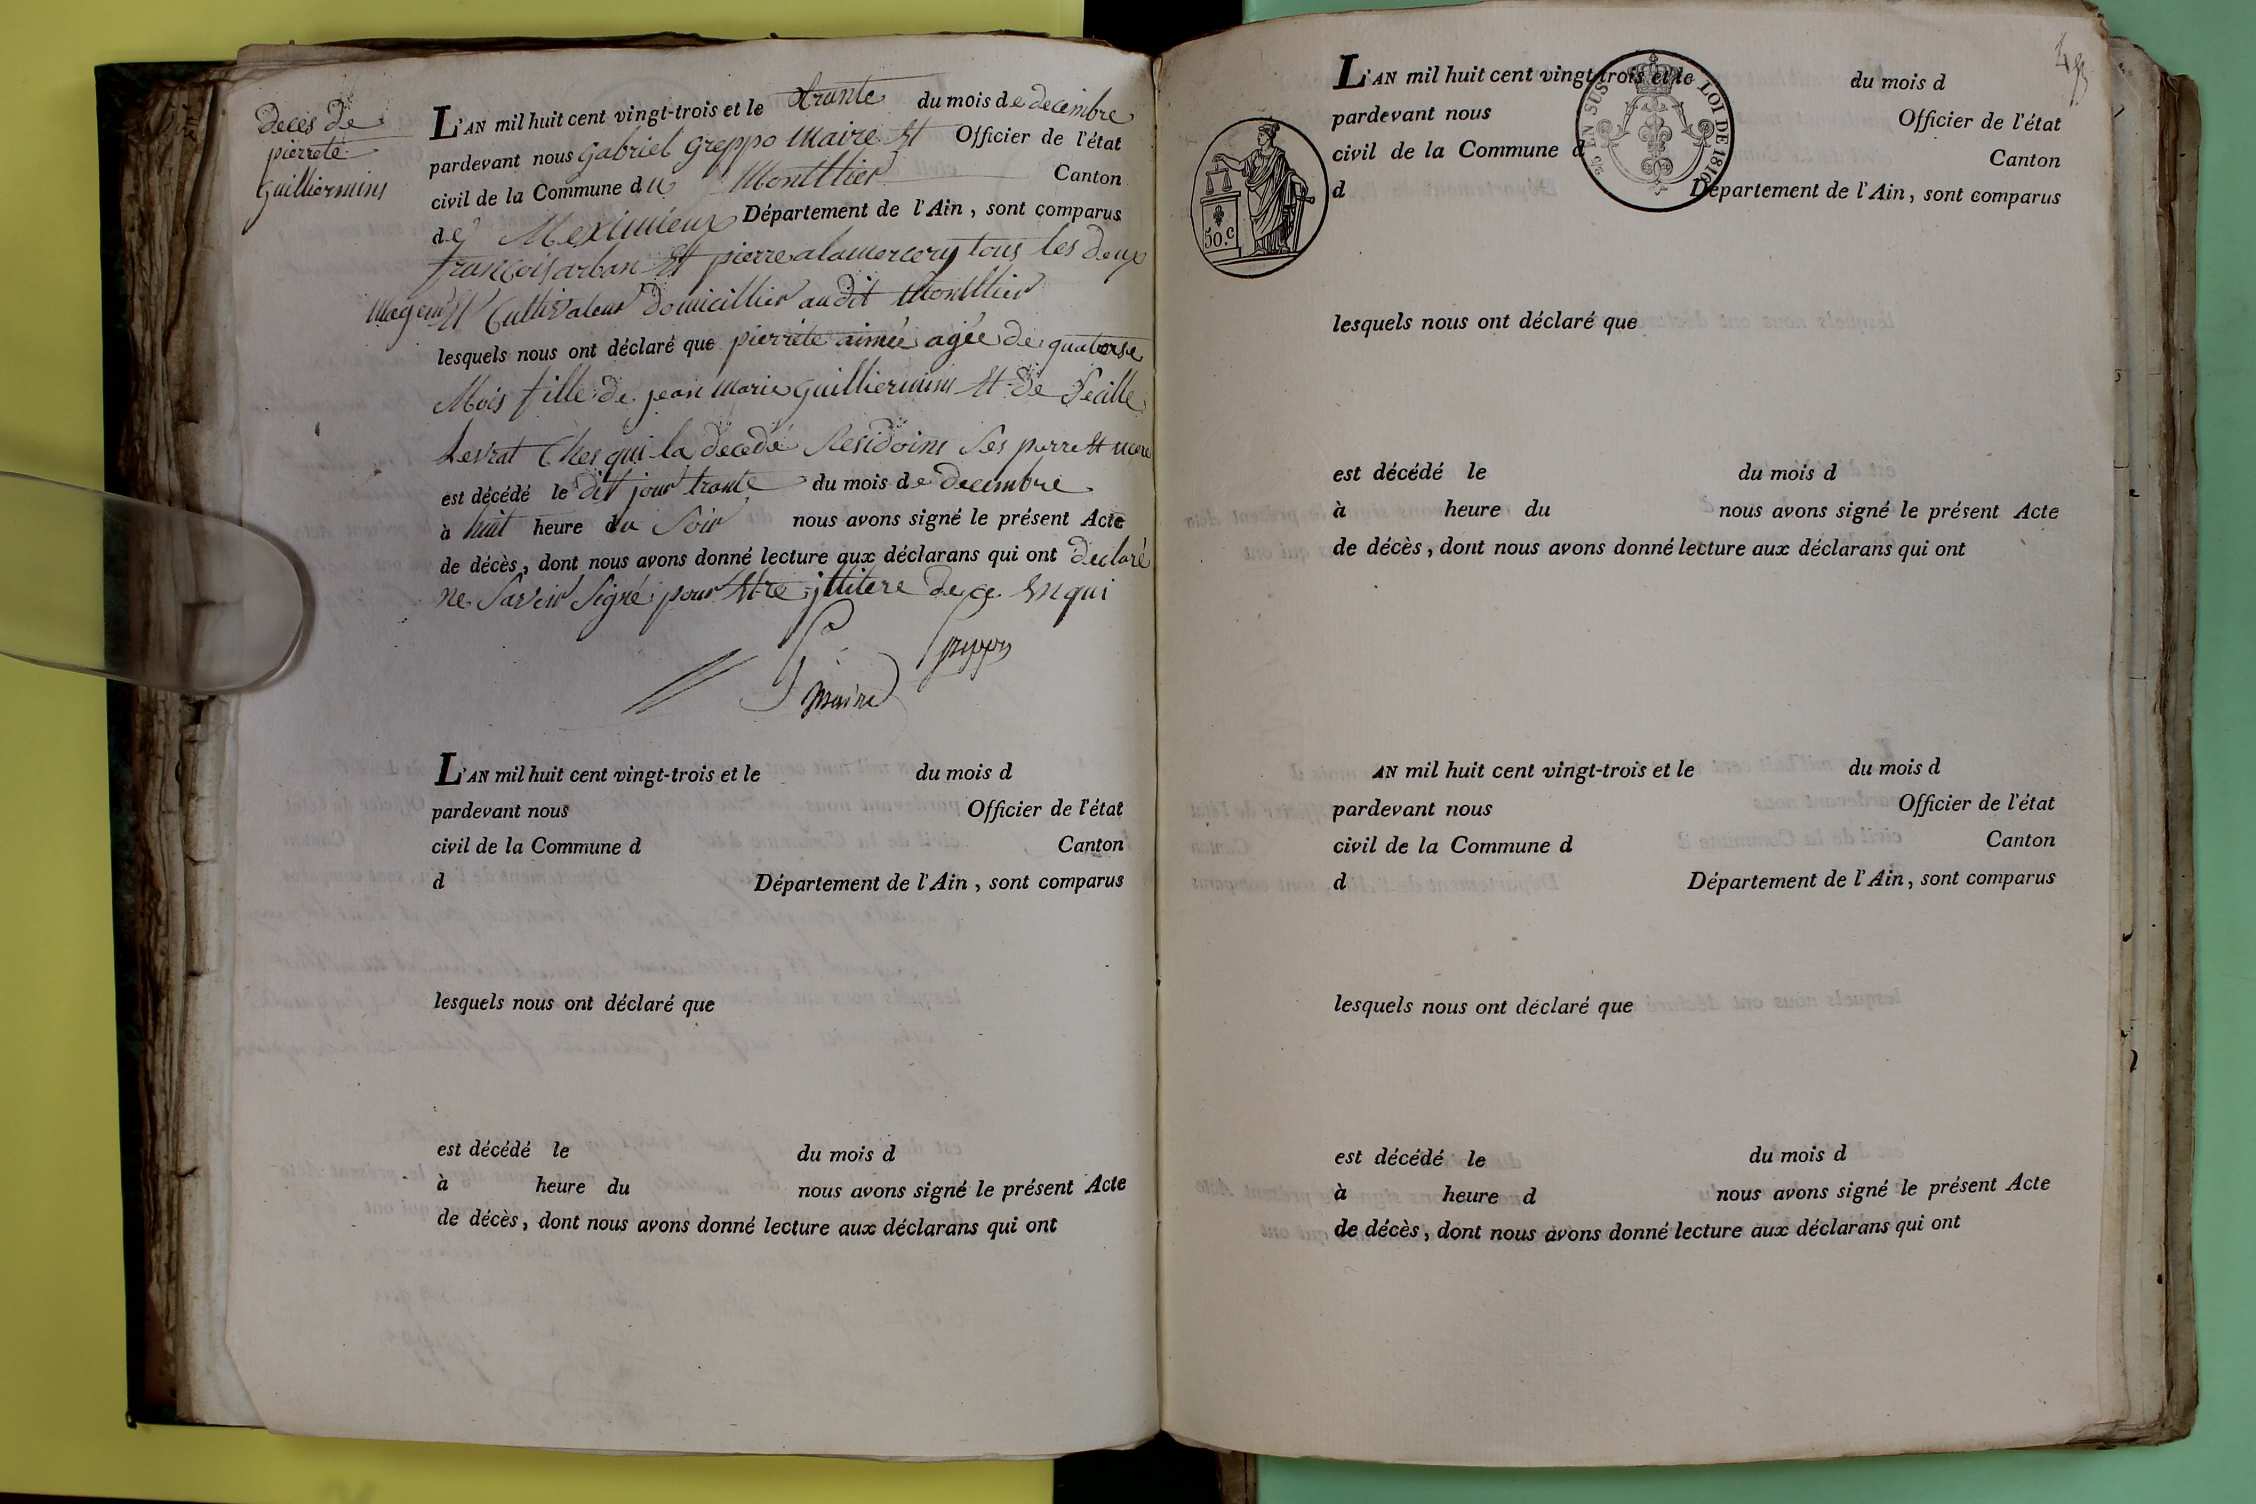 deces de
pierrete
Guilliermins
L'AN mil huit cent vingt-trois et le trante du mois de decembre
pardevant nous Gabriel Greppo Maire Et Officier de l'état
civil de la Commune du Montllier Canton
de Meximieux Département de l'Ain, sont comparus
francois arban Et pierre alamercery tous les deux
Mageur Et Cultivateur domicillier audit Montllier
lesquels nous ont déclaré que pierrete aimée agée de quatorse
Mois fille de jean Marie Guilliermins Et de Seille
Levrat Ches qui la decedé Residoins Ses perre Et mere
est décédé le dit jour trante du mois de decembre
à huit heure du Soir nous avons signé le présent Acte
de décès, dont nous avons donné lecture aux déclarans qui ont declaré
ne Savoir Signé pour Etre jllitere de ce Enqui
Greppo
Maire
L'AN mil huit cent vingt-trois et le du mois d
pardevant nous Officier de l'état
civil de la Commune d Canton
d Département de l'Ain, sont comparus
lesquels nous ont déclaré que
est décédé le du mois d
à heure du nous avons signé le présent Acte
de décès, dont nous avons donné lecture aux déclarans qui ont
L'AN mil huit cent vingt-trois et le du mois d
pardevant nous Officier de l'état
civil de la Commune d Canton
d Département de l'Ain, sont comparus
EN SUS LOI DE 1816
50.c
lesquels nous ont déclaré que
est décédé le du mois d
à heure du nous avons signé le présent Acte
de décès, dont nous avons donné lecture aux déclarans qui ont
AN mil huit cent vingt-trois et le du mois d
pardevant nous Officier de l'état
civil de la Commune d Canton
d Département de l'Ain, sont comparus
lesquels nous ont déclaré que
est décédé le du mois d
à heure d nous avons signé le présent Acte
de décès, dont nous avons donné lecture aux déclarans qui ont